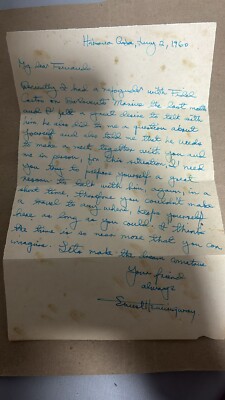 Havana Cuba, May 2, 1960
My dear Fernando:
Recently I had a rejoinder with Fidel
Castro on Hemingway Marina the last month
and I felt a great desire to talk with
him he also did to me a question about
yourself and also told me that he needs
to make a meet together with you and
me in person, for this situation, I need
you try to prepare yourself a great
reason to talk with him, again, in a
short time, therefore you couldn't make
a travel to any where, keep yourself
here as long as you could. I think
the time is so near more that you can
imagine. Let's make the
Your friend
always
Ernest Hemingway